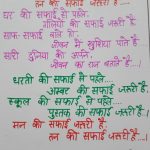 तन की सफाई जरूरी है..
घर की सफाई से पहले..
गलियों की सफाई जरूरी है
साफ सफाई बसे तो,
जीवन में खुशियां पाते है
सारी दुनिया को अपने,
जीवन का राज बताते है...
धरती की सफाई से पहले...
अम्बर की सफाई जरूरी है.
स्कूल की सफाई से पहले....
पुस्तक की सफाई जरूरी है..
मन की सफाई जरूरी है.
तन की सफाई जरूरी है..